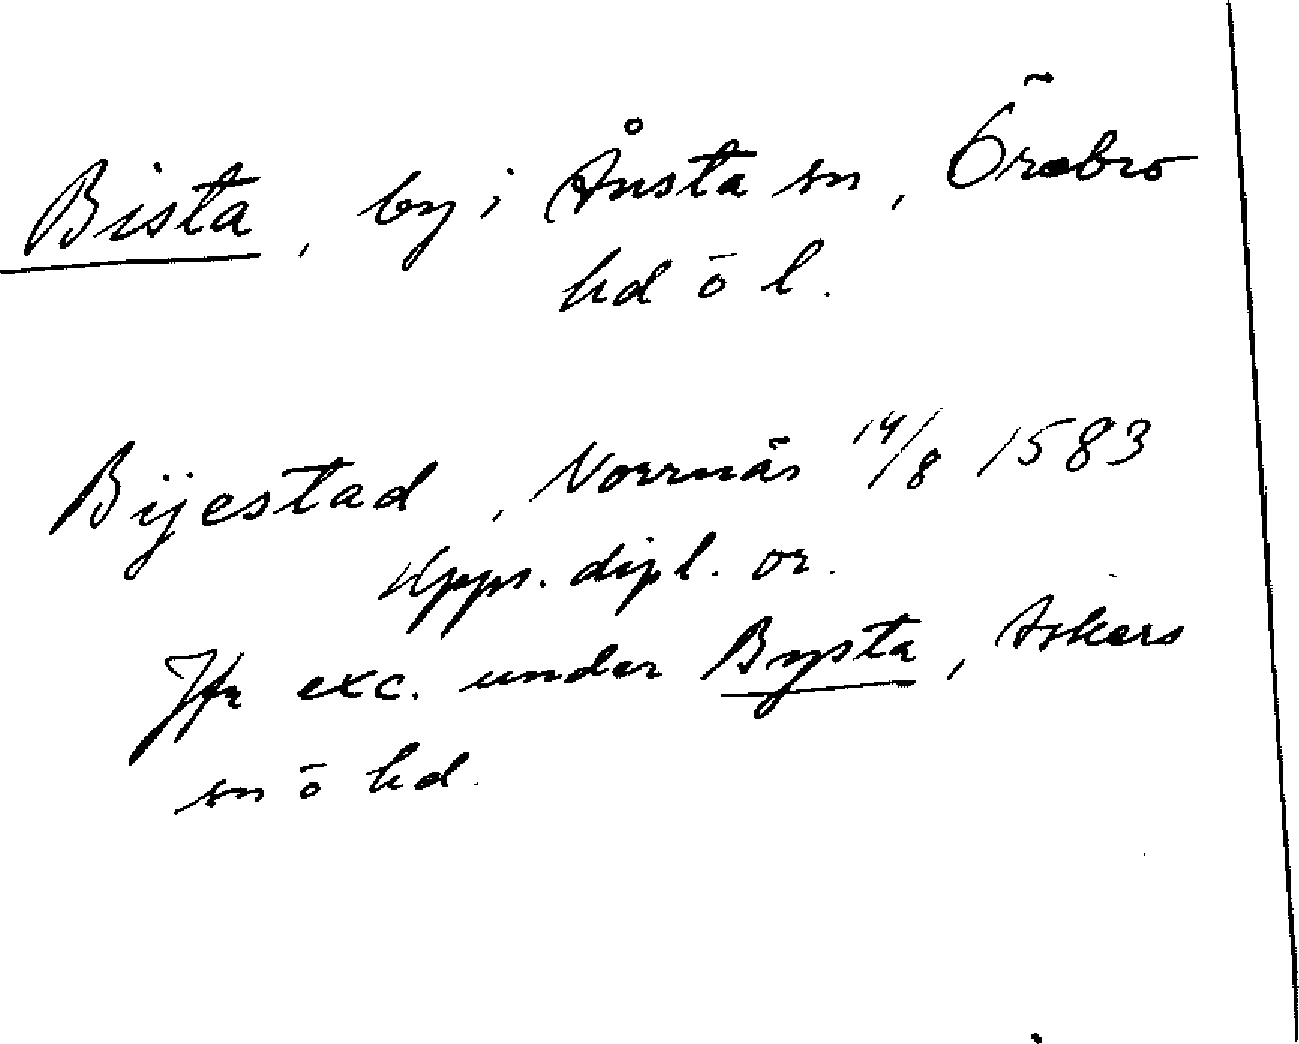 Bista, by i Ånsta sn, Örebro
hd ö l.
Bijestad, Norrnäs 14/8 1583
Upps. dipl. or.
Jfr exc. under Bysta, Askers
sn ö hd.